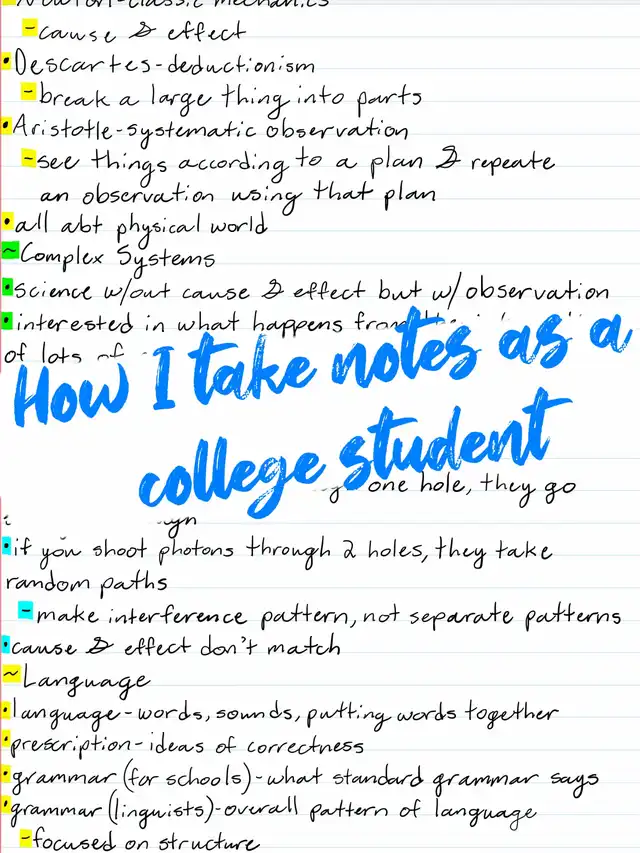 Newton-classic mechanics
-cause & effect
•Descartes-deductionism
-break a large thing into parts
•Aristotle-systematic observation
-see things according to a plan & repeate
an observation using that plan
•all abt physical world
~Complex Systems
•science w/out cause & effect but w/observation
•interested in what happens from
of lots of
How I take notes as a
college student
one hole, they go
•if you shoot photons through 2 holes, they take
random paths
-make interference pattern, not separate patterns
•cause & effect don't match
~Language
•language-words, sounds, putting words together
•prescription-ideas of correctness
•grammar (for schools)-what standard grammar says
•grammar (linguists)-overall pattern of language
-focused on structure